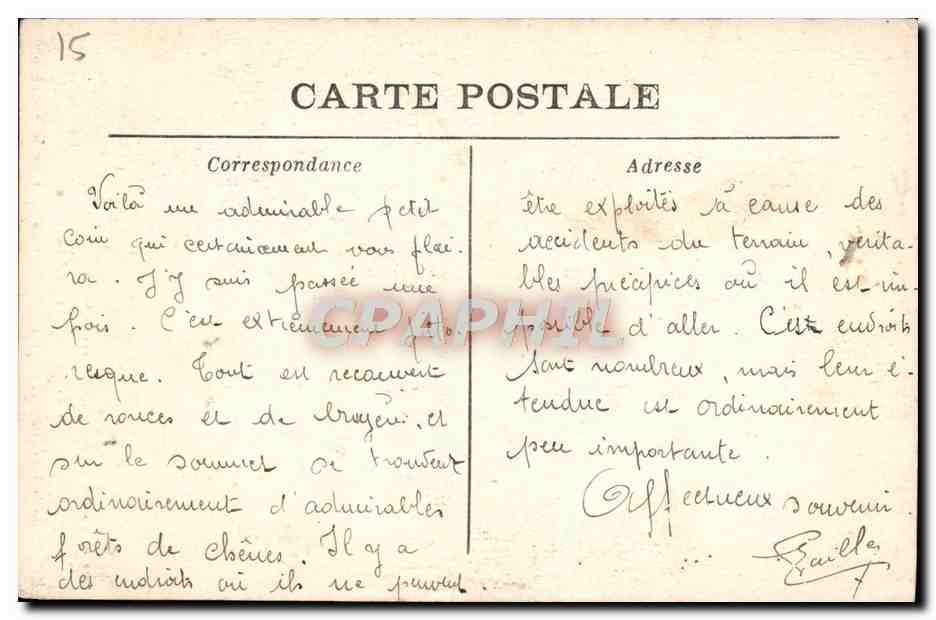 15
CARTE POSTALE
Correspondance
Voilà un admirable petit
coin qui certainement vous plai-
ra. J'y suis passée une
fois. C'est extrêmement pitto-
resque. Tout est recouvert
de ronces et de bruyère, et
sur le sommet se trouvent
ordinairement d'admirables
forêts de chênes. Il y a
des endroits où ils ne peuvent
Adresse
être exploités à cause des
accidents du terrain, vérita-
bles précipices où il est im-
possible d'aller. C'est endroits
sont nombreux, mais leur é-
tendue est ordinairement
peu importante.
Affectueux souvenir.
CPAPHIL